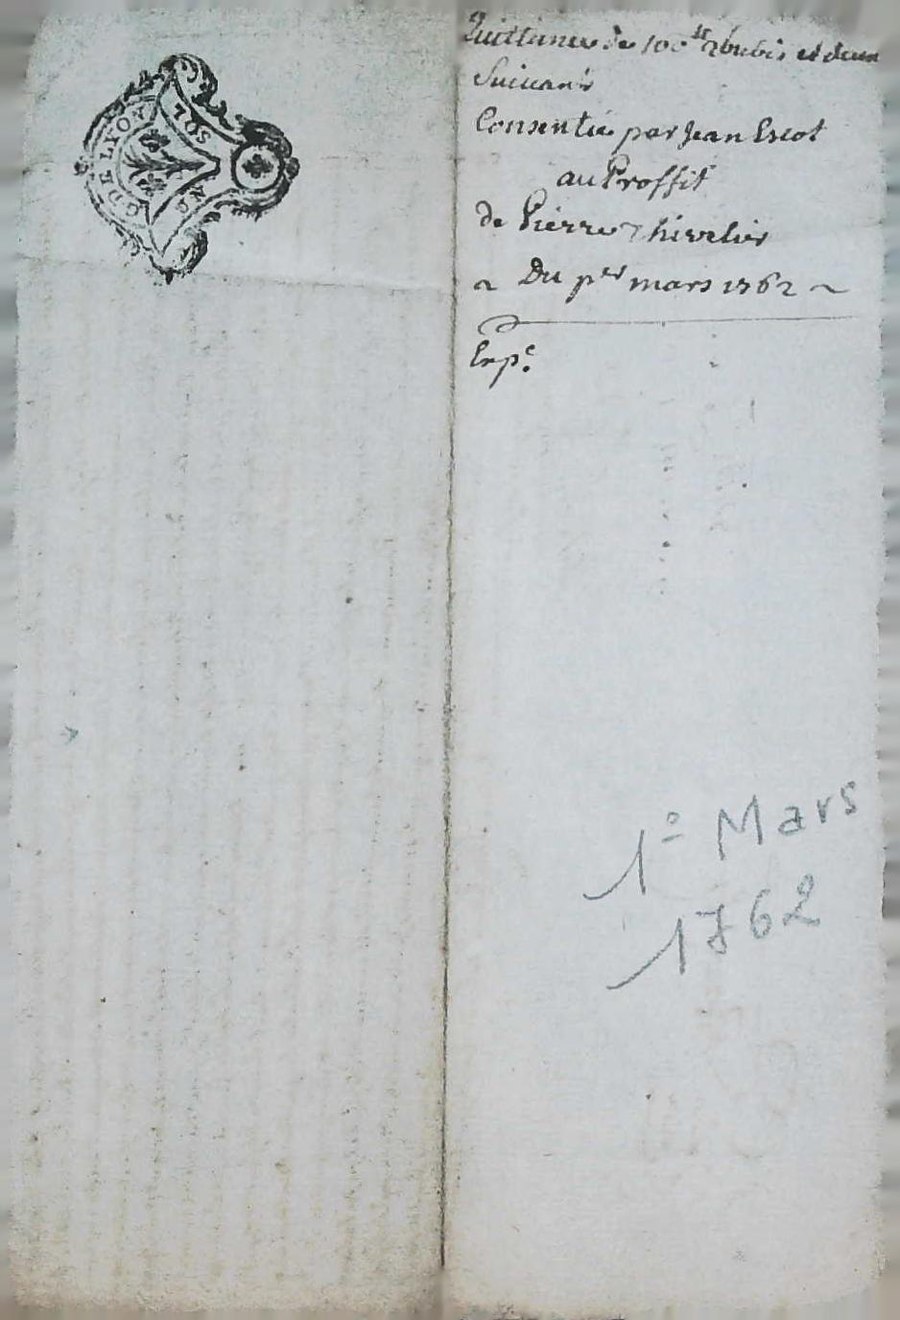 G DE LYON
SOL
Quittance de 100 ₶ et deux
Suivant
Consentie par Jean Escot
au Proffit
de Pierre
Du p.er mars 1762
Exp.e
1º Mars
1762